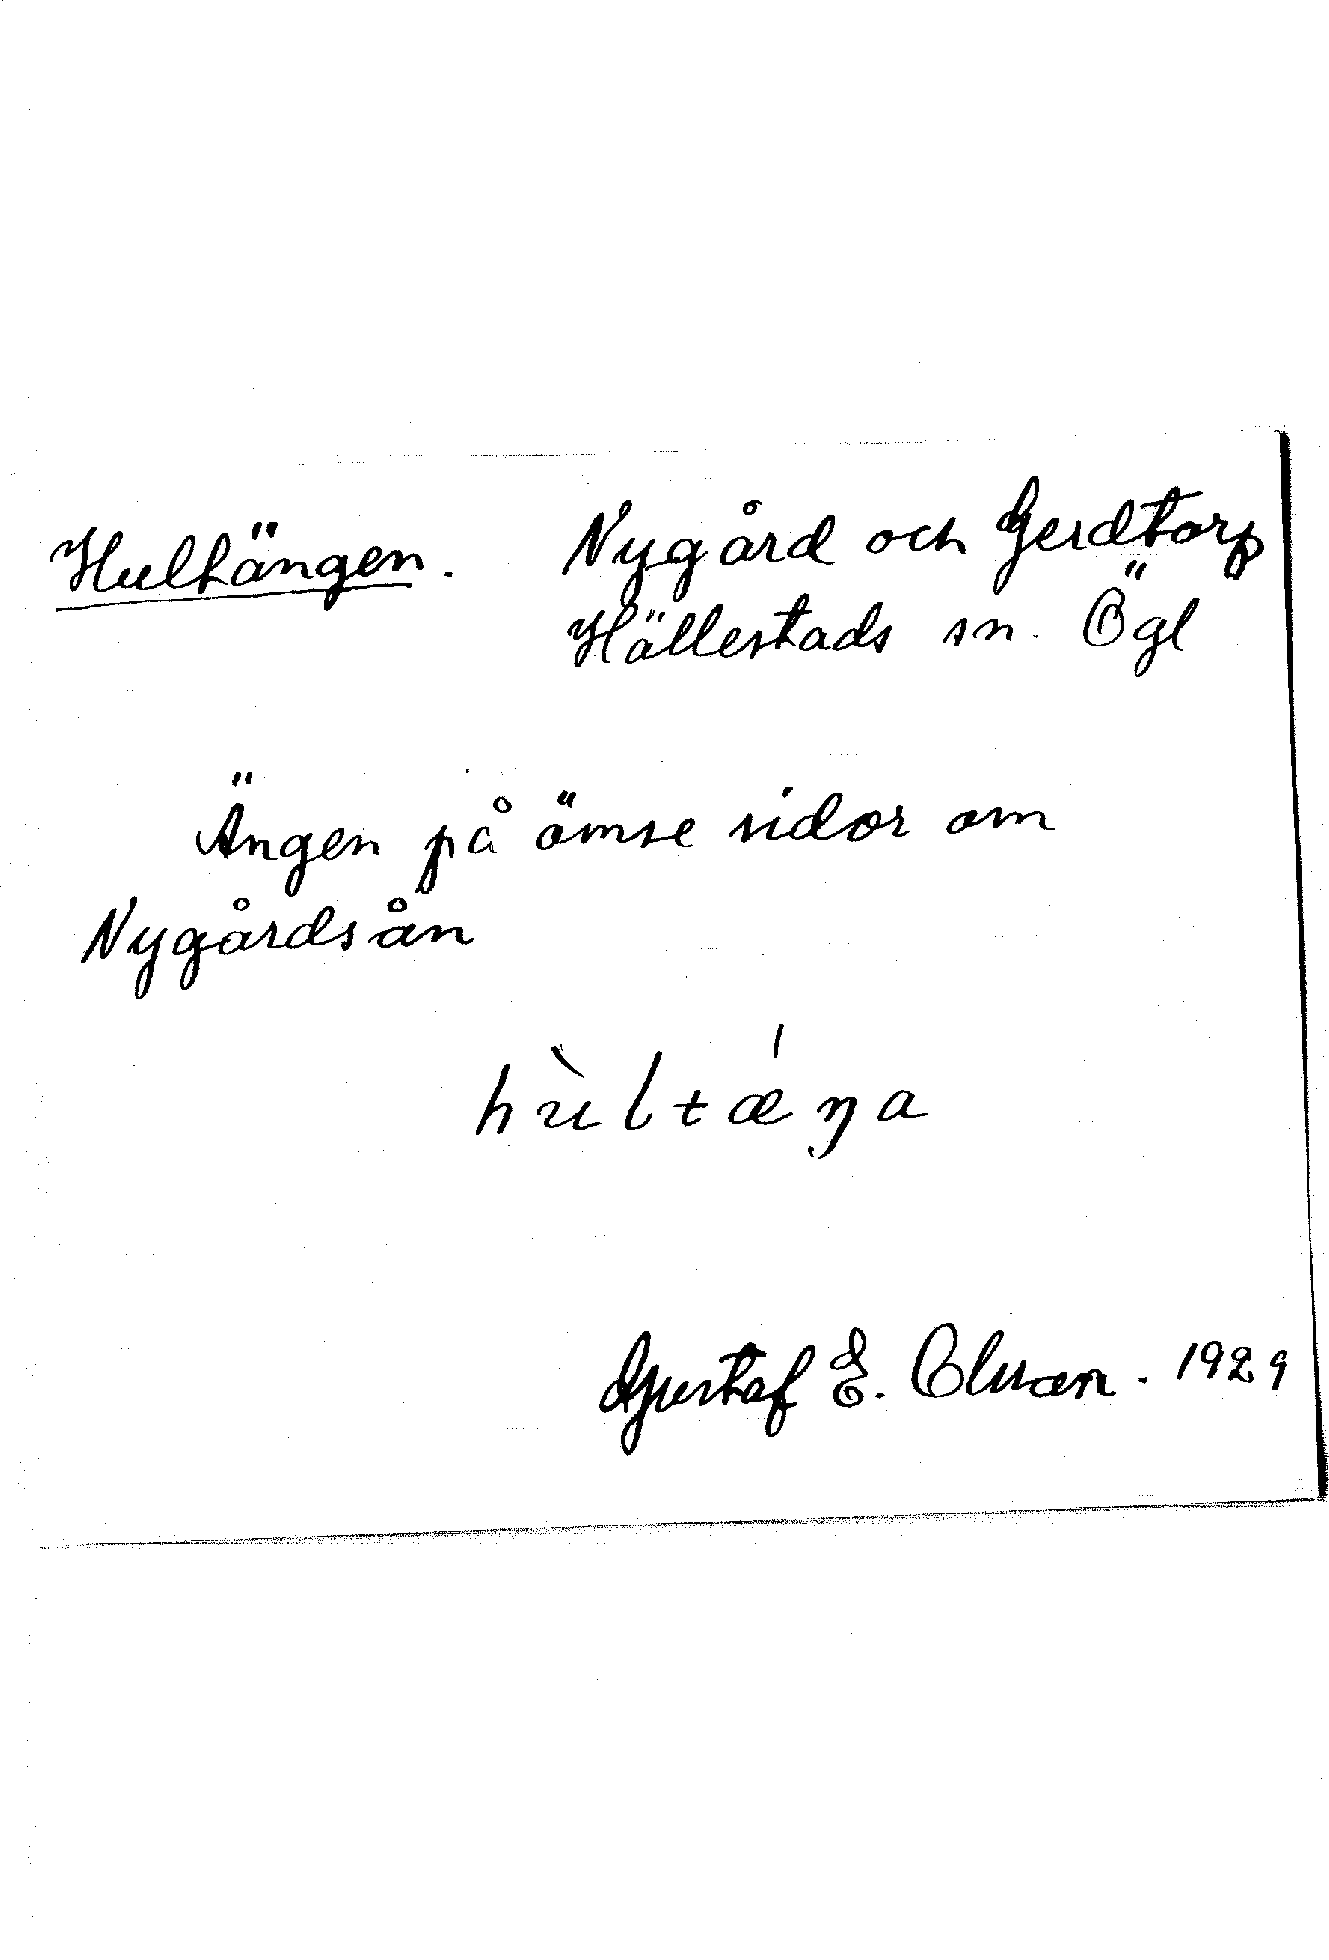 Hultängen. Nygård och Gerdtorp
Hällestads sn. Ögl
Ängen på ömse sidor om
Nygårdsån
hùltǽŋa
Gustaf E. Olsson. 1929